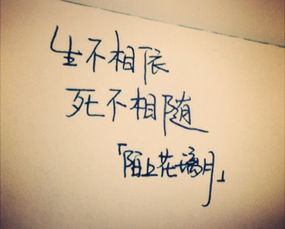 生不相依
死不相随
「陌上花璃月」